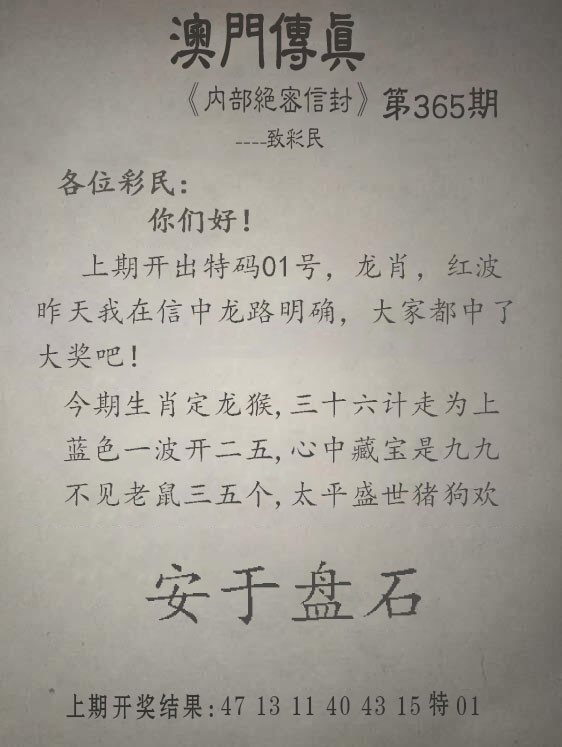 澳門傳眞
《内部絕密信封》第365期
----致彩民
各位彩民：
你们好！
上期开出特码01号，龙肖，红波
昨天我在信中龙路明确，大家都中了
大奖吧！
今期生肖定龙猴,三十六计走为上
蓝色一波开二五,心中藏宝是九九
不见老鼠三五个,太平盛世猪狗欢
安于盘石
上期开奖结果:47 13 11 40 43 15 特 01